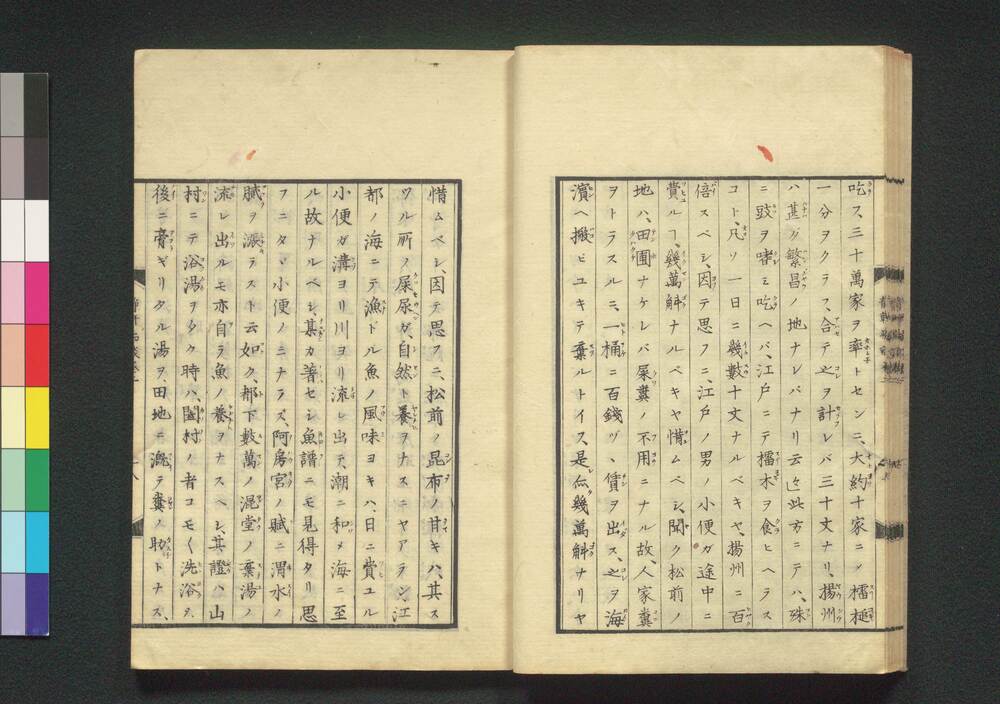 吃ス、三十萬家ヲ率トセンニ、大約十家ニノ檑槌
一分ヲクラフ、合テ之ヲ計レバ三十丈ナリ、揚州
ハ甚ダ繁昌ノ地ナレバナリ云々此方ニテハ、殊
ニ豉ヲ嗜ミ吃ヘバ、江戸ニテ檑木ヲ食ヒヘラス
コト、凡ソ一日ニ幾數十丈ナルベキヤ、揚州ニ百
倍スベシ、因テ思フニ、江戸ノ男ノ小便ガ途中ニ
費ルヿ、幾萬斛ナルベキヤ惜ムベシ、聞ク松前ノ
地ハ、田圃ナケレバ屎糞ノ不用ニナル故、人家糞
ヲトラスルニ、一桶ニ百錢ヅヽ賃ヲ出ス、之ヲ海
濱ヘ搬ビユキテ棄ルトイフ、是亦幾萬斛ナリヤ
惜ムベシ、因テ思フニ、松前ノ昆布ノ甘キハ、其ス
ツル所ノ屎尿ガ、自然ト養ヲナスニヤアラン、江
都ノ海ニテ漁ドル魚ノ風味ヨキハ、日ニ費ユル
小便ガ溝ヨリ川ヨリ流レ出テ、潮ニ和メ海ニ至
ル故ナルベシ、某カ著セシ魚譜ニモ見得タリ思
フニタヾ小便ノミニナラズ、阿房宮ノ賦ニ渭水ノ
膩ヲ漲ラスト云如ク、都下數萬ノ混堂ノ棄湯ノ
流レ出ルモ亦自ラ魚ノ養ヲナスヘシ、其證ハ山
村ニテ浴湯ヲタク時ハ、闔村ノ者コモ〱洗浴ス、
後ニ膏ギリタル湯ヲ、田地ニ漑テ糞ノ助トナス、